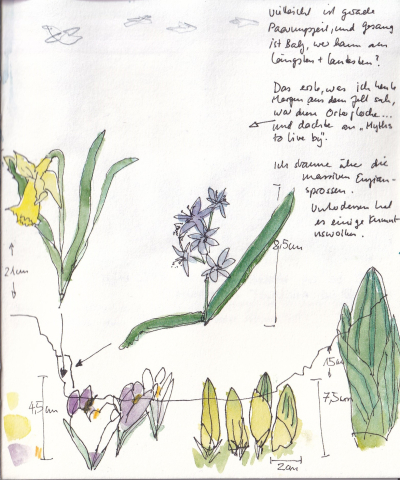 Vielleicht ist gerade
Paarungszeit, und Gesang
ist Balz, wer kann am
längsten + lautesten?
Das erste, was ich heute
Morgen aus dem Zelt sah,
war diese
und dachte an "Myths
to live by".
Ich staune über die
massiven Enzian-
sprossen.
es einige
21cm
8,5cm
15cm
4,5cm
7,5cm
2cm